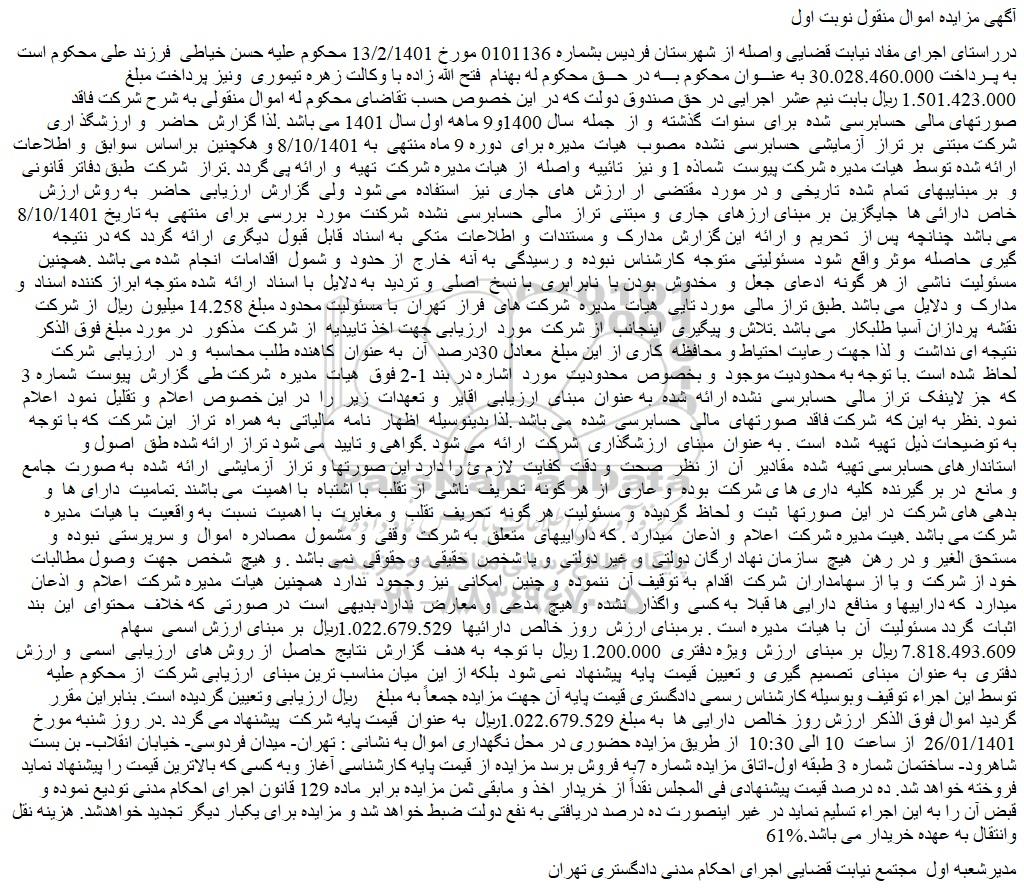 آگهی مزایده اموال منقول نوبت اول
درراستای اجرای مفاد نیابت قضایی واصله از شهرستان فردیس بشماره 0101136 مورخ 13/2/1401 محکوم علیه حسن خیاطی فرزند علی محکوم است
به پرداخت 30.028.460.000 به عنوان محکوم به در حق محکوم له بهنام فتح الله زاده با وکالت زهره تیموری ونیز پرداخت مبلغ
1.501.423.000 ریال بابت نیم عشر اجرایی در حق صندوق دولت که در این خصوص حسب تقاضای محکوم له اموال منقولی به شرح شرکت فاقد
صورتهای مالی حسابرسی شده برای سنوات گذشته و از جمله سال 1400و9 ماهه اول سال 1401 می باشد .لذا گزارش حاضر و ارزشگذ اری
شرکت مبتنی بر تراز آزمایشی حسابرسی نشده مصوب هیات مدیره برای دوره 9 ماه منتهی به 8/10/1401 و هکچنین براساس سوابق و اطلاعات
ارائه شده توسط هیات مدیره شرکت پیوست شماذه 1 و نیز تائییه واصله از هیات مدیره شرکت تهیه و ارائه پی گردد .تراز شرکت طبق دفاتر قانونی
و بر مبنایبهای تمام شده تاریخی و در مورد مقتضی ار ارزش های جاری نیز استفاده می شود ولی گزارش ارزیابی حاضر به روش ارزش
خاص دارائی ها جایگزین بر مبنای ارزهای جاری و مبتنی تراز مالی حسابرسی نشده شرکنت مورد بررسی برای منتهی به تاریخ 8/10/1401
می باشد چنانچه پس از تحریم و ارائه این گزارش مدارک و مستندات و اطلاعات متکی به اسناد قابل قبول دیگری ارائه گردد که در نتیجه
گیری حاصله موثر واقع شود مسئولیتی متوجه کارشناس نبوده و رسیدگی به آنه خارج از حدود و شمول اقدامات انجام شده می باشد .همچنین
مسئولیت ناشی از هر گونه ادعای جعل و مخدوش بودن یا نابرابری با نسخ اصلی و تردید به دلایل با اسناد ارائه شده متوجه ابراز کننده اسناد و
مدارک و دلایل می باشد .طبق تراز مالی مورد تایی هیات مدیره شرکت های فراز تهران با مسئولیت محدود مبلغ 14.258 میلیون ریال از شرکت
نقشه پردازان آسیا طلبکار می باشد .تلاش و پیگیری اینجانب از شرکت مورد ارزیابی جهت اخذ تاییدیه از شرکت مذکور در مورد مبلغ فوق الذکر
نتیجه ای نداشت و لذا جهت رعایت احتیاط و محافظه کاری از این مبلغ معادل 30درصد آن به عنوان کاهنده طلب محاسبه و در ارزیابی شرکت
لحاظ شده است .با توجه به محدودیت موجود و بخصوص محدودیت مورد اشاره در بند 1-2 فوق هیات مدیره شرکت طی گزارش پیوست شماره 3
که جز لاینفک تراز مالی حسابرسی نشده ارائه شده به عنوان مبنای ارزیابی اقایر و تعهدات زیر را در این خصوص اعلام و تقلیل نمود اعلام
نمود .نظر به این که شرکت فاقد صورتهای مالی حسابرسی شده می باشد .لذا بدینوسیله اظهار نامه مالیاتی به همراه تراز این شرکت که با توجه
به توضیحات ذیل تهیه شده است . به عنوان مبنای ارزشگذاری شرکت ارائه می شود .گواهی و تایید می شود تراز ارائه شده طق اصول و
استاندارهای حسابرسی تهیه شده مقادیر آن از نظر صحت و دقت کفایت لازم ئ را دارد این صورتها و تراز آزمایشی ارائه شده به صورت جامع
و مانع در بر گیرنده کلیه داری ها ی شرکت بوده و عاری از هر گونه تحریف ناشی از تقلب یا اشتباه با اهمیت می باشند .تمامیت دارای ها و
بدهی های شرکت در این صورتها ثبت و لحاظ گردیده و مسئولیت هر گونه تحریف تقلب و مغایرت با اهمیت نسبت به واقعیت با هیات مدیره
شرکت می باشد .هیت مدیره شرکت اعلام و اذعان میدارد . که داراییهای متعلق به شرکت وقفی و مشمول مصادره اموال و سرپرستی نبوده و
مستحق الغیر و در رهن هیچ سازمان نهاد ارگان دولتی و غیر دولتی و یا شخص حقیقی و حقوقی نمی باشد . و هیچ شخص جهت وصول مطالبات
خود از شرکت و یا از سهامداران شرکت اقدام به توقیف آن ننموده و چنین امکانی نیز وجحود ندارد همچنین هیات مدیره شرکت اعلام و اذعان
میدارد که داراییها و منافع دارایی ها قبلا به کسی واگذار نشده و هیچ مدعی و معارض ندارد بدیهی است در صورتی که خلاف محتوای این بند
اثبات گردد مسئولیت آن با هیات مدیره است . برمبنای ارزش روز خالص دارائیها 1.022.679.529ریال بر مبنای ارزش اسمی سهام
7.818.493.609 ریال بر مبنای ارزش ویژه دفتری 1.200.000 ریال با توجه به هدف گزارش نتایج حاصل از روش های ارزیابی اسمی و ارزش
دفتری به عنوان مبنای تصمیم گیری و تعیین قیمت پایه پیشنهاد نمی شود بلکه از این میان مناسب ترین مبنای ارزیابی شرکت از محکوم علیه
توسط این اجراء توقیف وبوسیله کارشناس رسمی دادگستری قیمت پایه آن جهت مزایده جمعاً به مبلغ ریال ارزیابی وتعیین گردیده است. بنابراین مقرر
گردید اموال فوق الذکر ارزش روز خالص دارایی ها به مبلغ 1.022.679.529ریال به عنوان قیمت پایه شرکت پیشنهاد می گردد .در روز شنبه مورخ
26/01/1401 از ساعت 10 الی 10:30 از طریق مزایده حضوری در محل نگهداری اموال به نشانی : تهران- میدان فردوسی- خیابان انقلاب- بن بست
شاهرود- ساختمان شماره 3 طبقه اول-اتاق مزایده شماره 7به فروش برسد مزایده از قیمت پایه کارشناسی آغاز وبه کسی که بالاترین قیمت را پیشنهاد نماید
فروخته خواهد شد. ده درصد قیمت پیشنهادی فی المجلس نقداً از خریدار اخذ و مابقی ثمن مزایده برابر ماده 129 قانون اجرای احکام مدنی تودیع نموده و
قبض آن را به این اجراء تسلیم نماید در غیر اینصورت ده درصد دریافتی به نفع دولت ضبط خواهد شد و مزایده برای یکبار دیگر تجدید خواهدشد. هزینه نقل
وانتقال به عهده خریدار می باشد.61%
مدیرشعبه اول مجتمع نیابت قضایی اجرای احکام مدنی دادگستری تهران